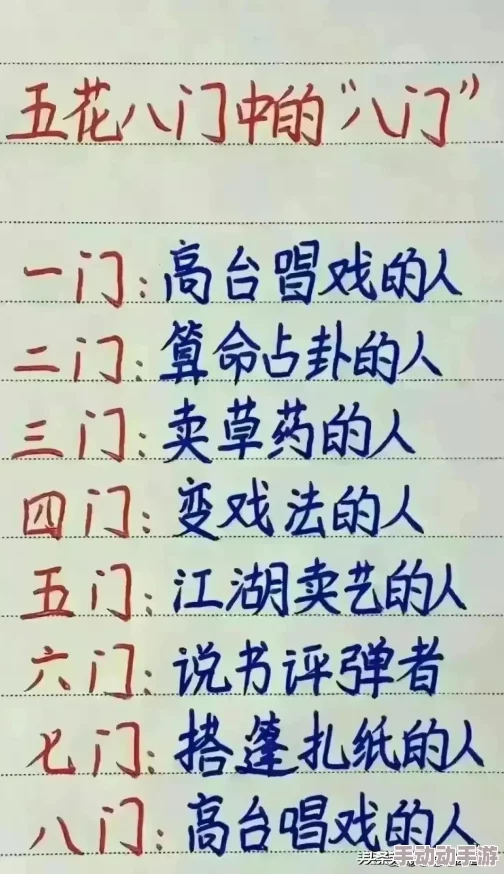 五花八门中的“八门”
一门：高台唱戏的人
二门：算命占卦的人
三门：卖草药的人
四门：变戏法的人
五门：江湖卖艺的人
六门：说书评弹者
七门：搭篷扎纸的人
八门：高台唱戏的人
手动动手游